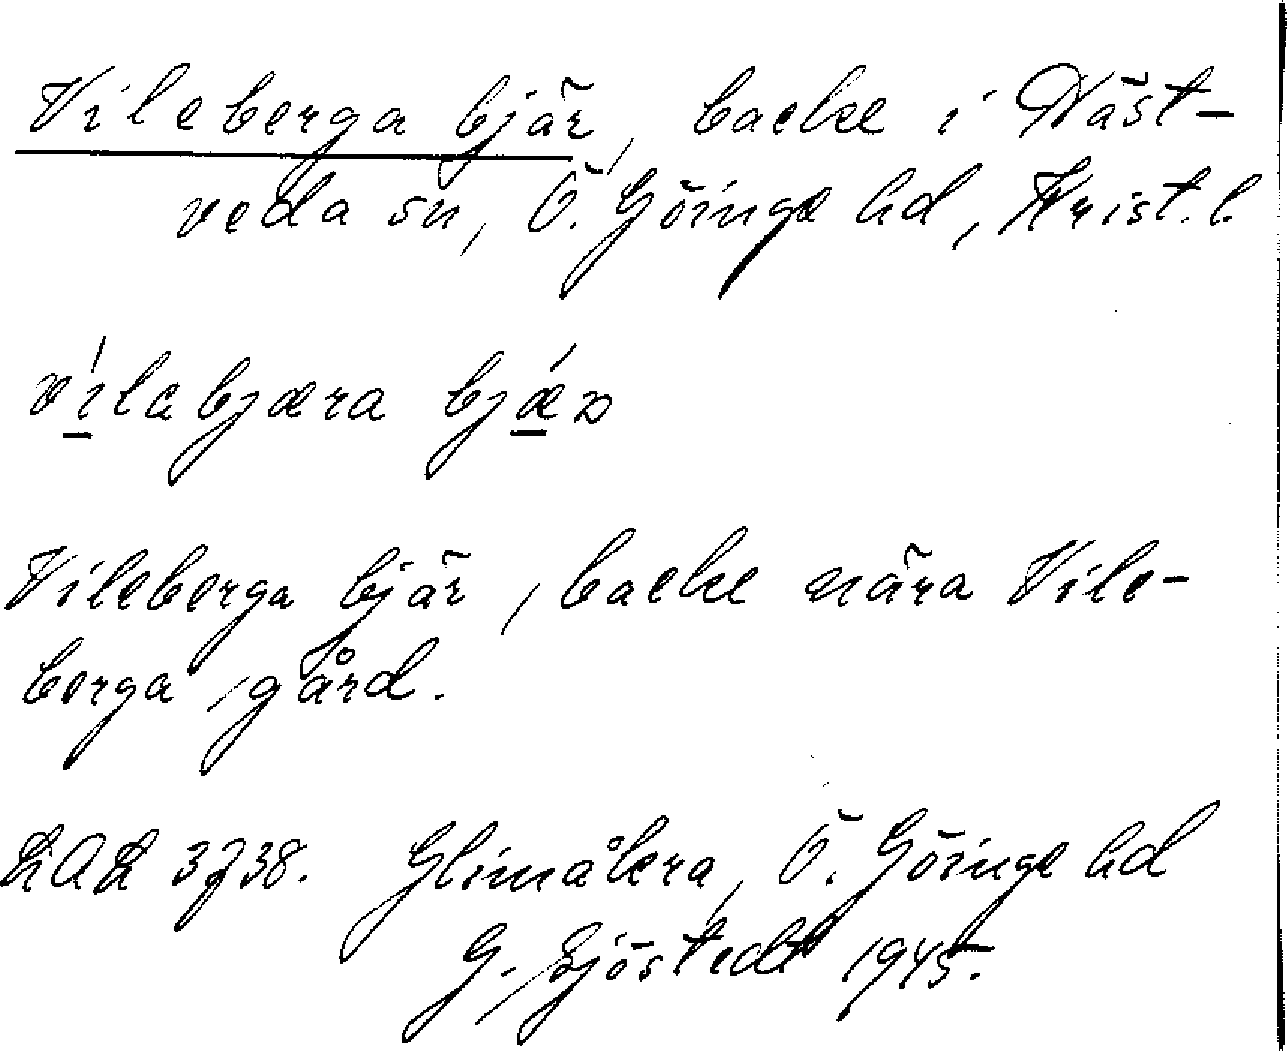 Vileberga bjär, backe i Näst-
veda sn, Ö. Göinge hd, Krist. l.
vilabjæra bjær
Vileberga bjär, backe nära Vile-
berga gård.
LAL 3738. Glimåkra, Ö. Göinge hd
G. Sjöstedt 1945.